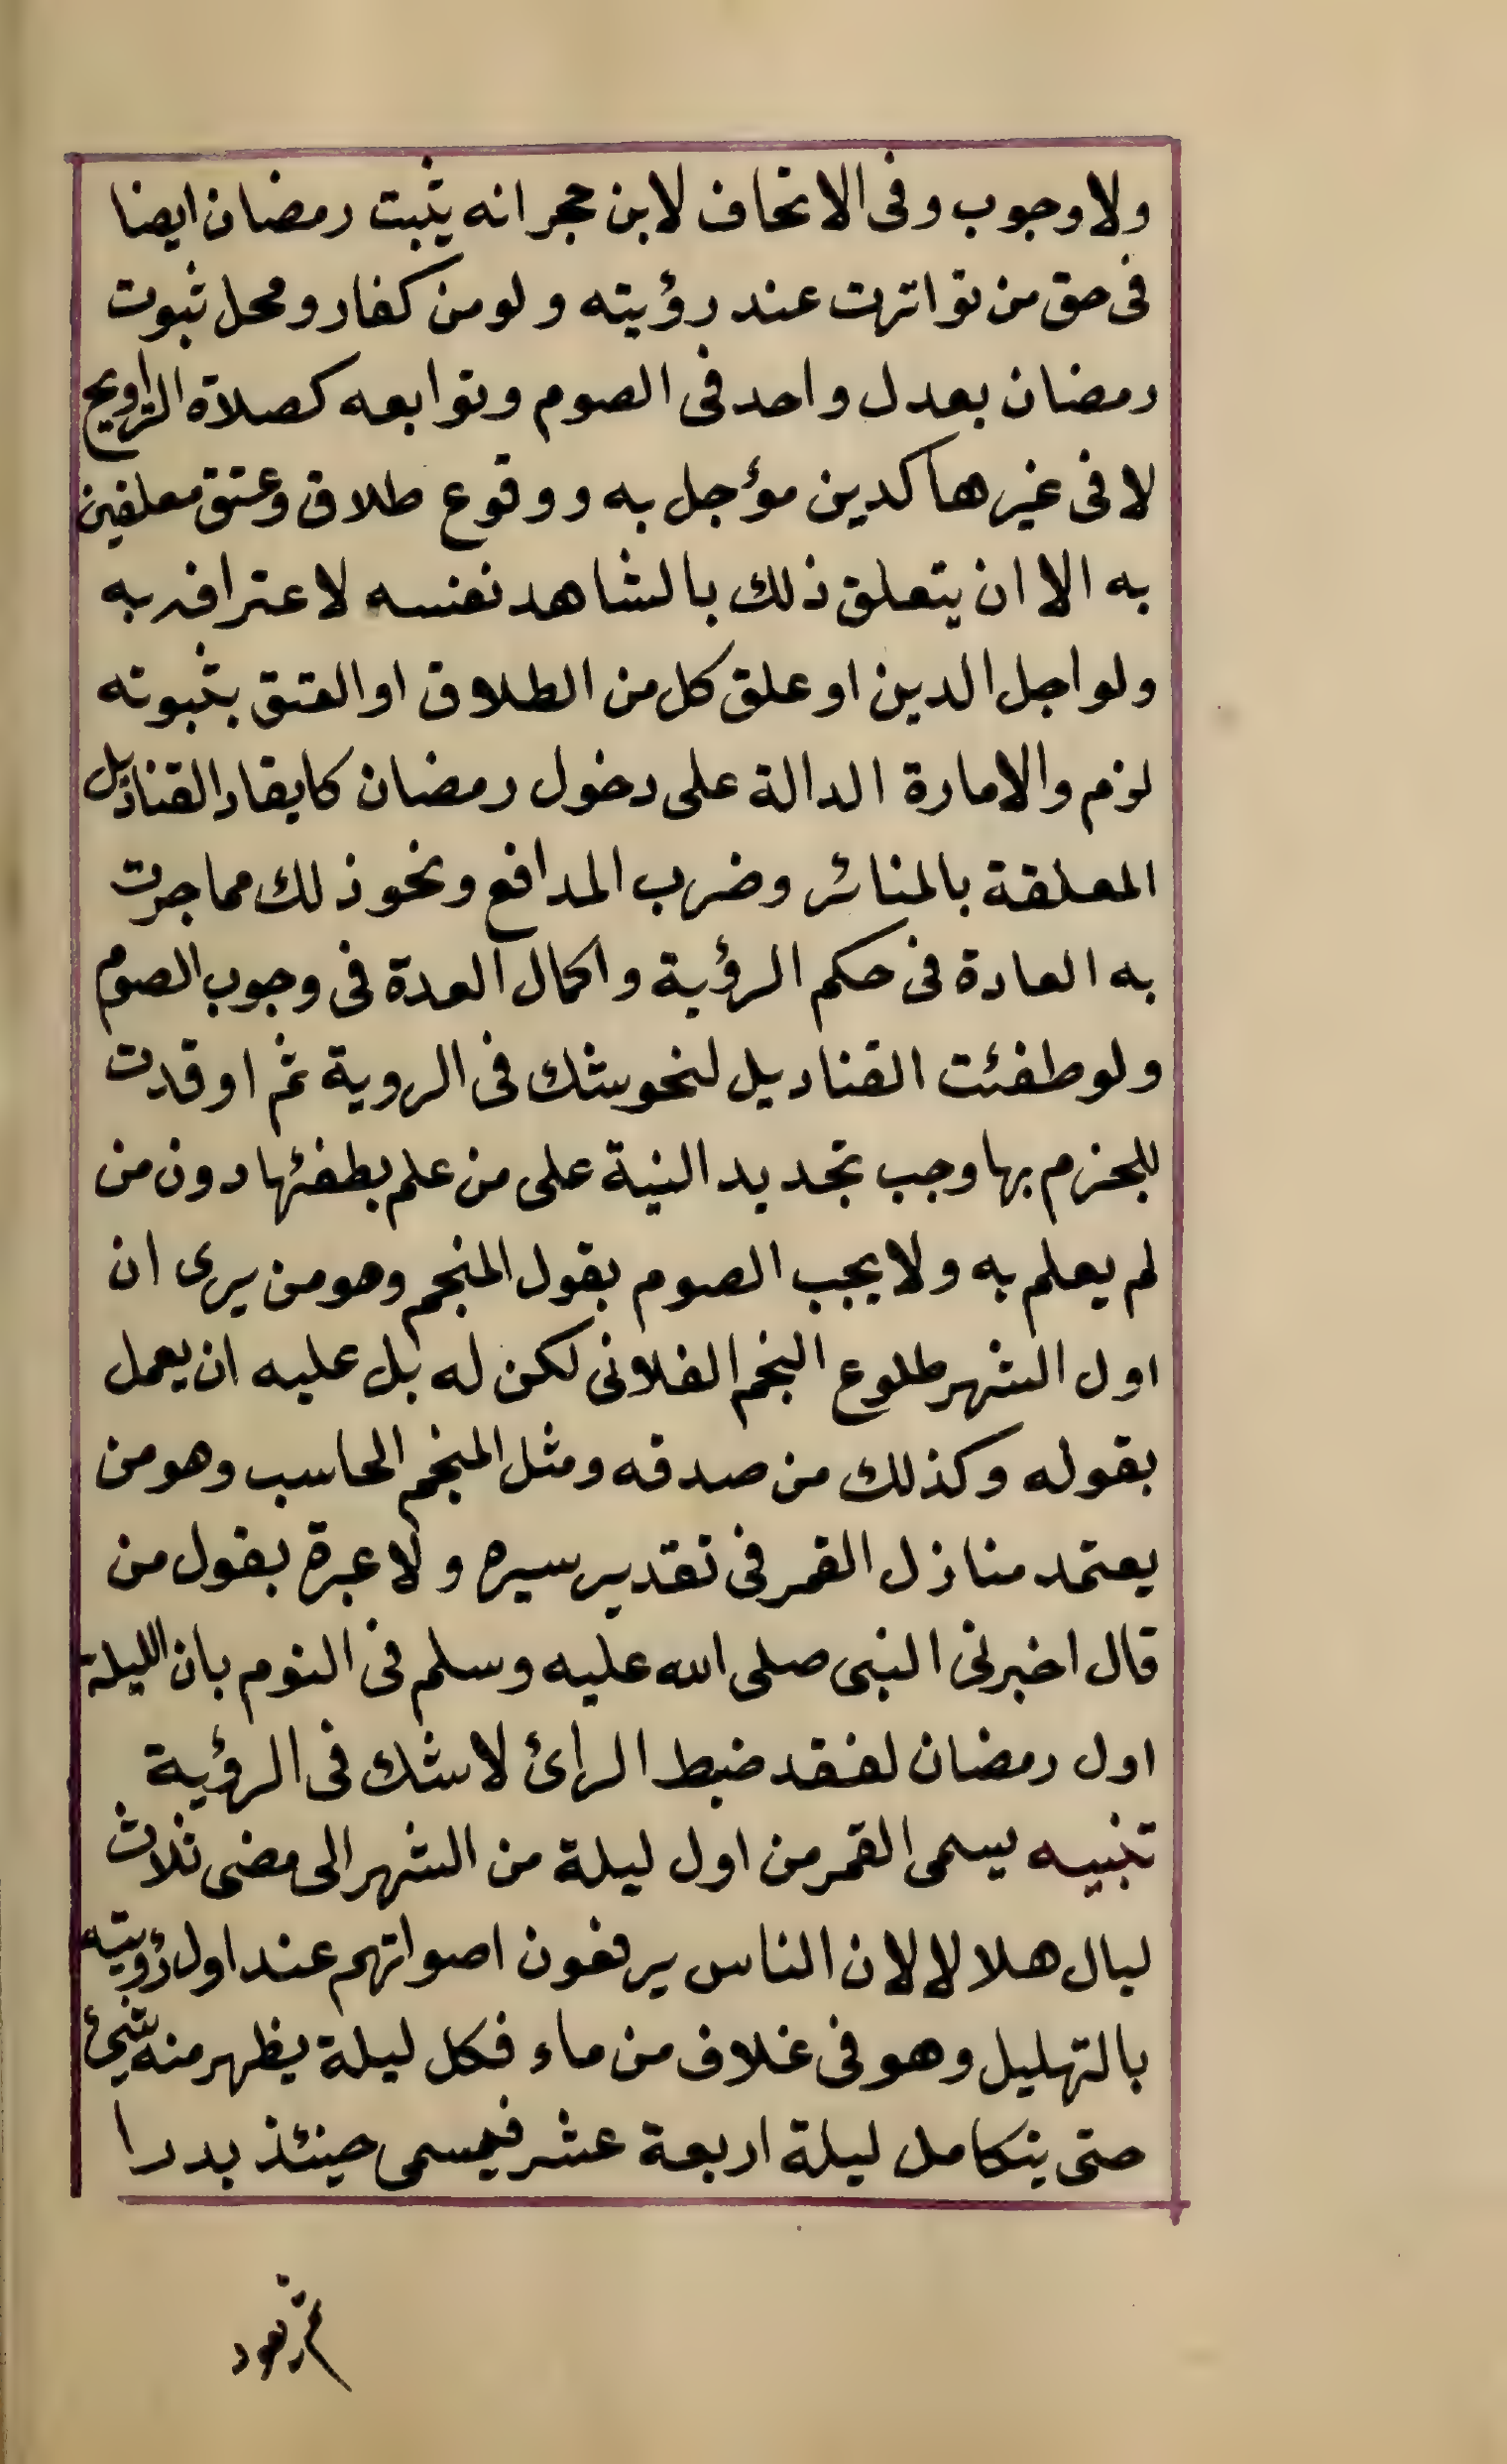 ولا وجوب وفى الاتحاف لابن حجر انه يثبت رمضان ايضا
فى حق من تواترت عند رؤيته ولو من كفار ومحل ثبوت
رمضان بعدل واحد فى الصوم وتوابعه كصلاة التراويح
لا فى غيرها كدين مؤجل به ووقوع طلاق وعتق معلقين
به الا ان يتعلق ذلك بالشاهد نفسه لاعترافه به
ولو اجل الدين او علق كل من الطلاق او العتق بثبوته
لزم والامارة الدالة على دخول رمضان كايقاد القناديل
المعلقة بالمنائر وضرب المدافع ونحو ذلك مما جرت
به العادة فى حكم الرؤية واكمال العدة فى وجوب الصوم
ولو طفئت القناديل لنحو شك فى الروية ثم اوقدت
للجزم بها وجب تجديد النية على من علم بطفئها دون من
لم يعلم به ولا يجب الصوم بقول المنجم وهو من يرى ان
اول الشهر طلوع النجم الفلانى لكن له بل عليه ان يعمل
بقوله وكذلك من صدقه ومثل المنجم الحاسب وهو من
يعتمد منازل القمر فى تقدير سيره ولا عبرة بقول من
قال اخبرنى النبى صلى الله عليه وسلم فى النوم بان الليلة
اول رمضان لفقد ضبط الرائ لا شك فى الرؤية
تنبيه يسمى القمر من اول ليلة من الشهر الى مضى ثلاث
ليال هلالا لان الناس يرفعون اصواتهم عند اول رؤيته
بالتهليل وهو فى غلاف من ماء فكل ليلة يظهر منه شيئ
حتى يتكامل ليلة اربعة عشر فيسمى حينئذ بدرا
ثم يعود